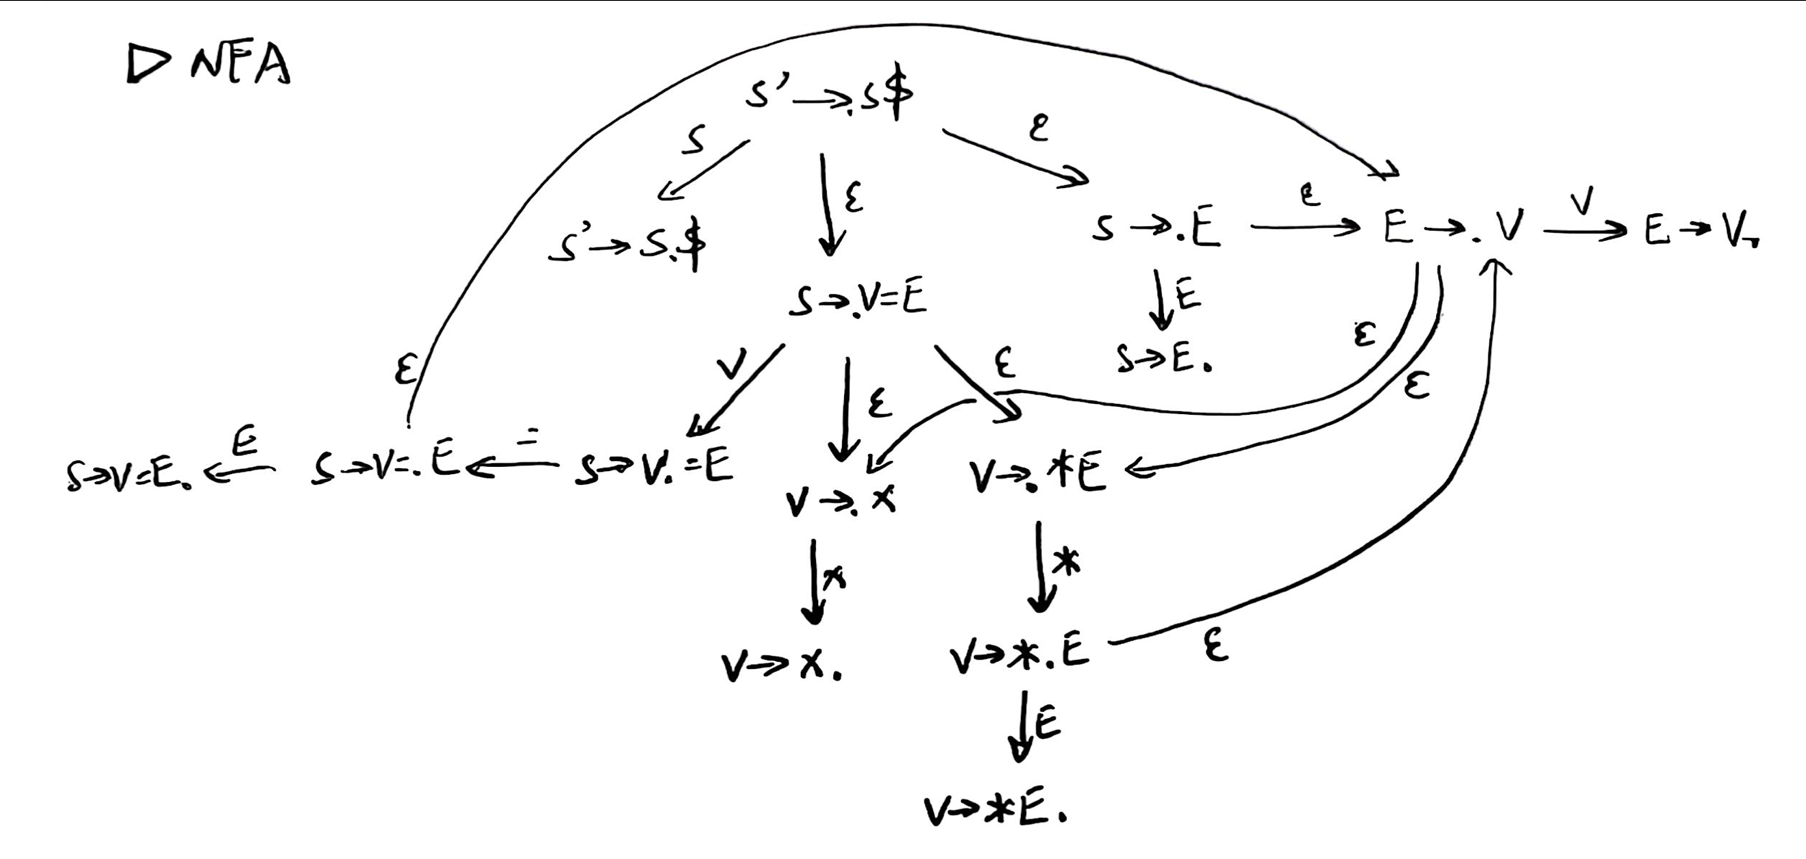 ▷ NFA
S' →.S$
S
ε
ε
S' → S.$
S →.E
ε
E →. V
V
E → V.
S →.V=E
E
S → E.
ε
ε
ε
V
ε
ε
S → V=E.
E
S → V=.E
=
S → V.=E
V →. x
V →. *E
x
*
V → x.
V → *.E
ε
E
V → *E.